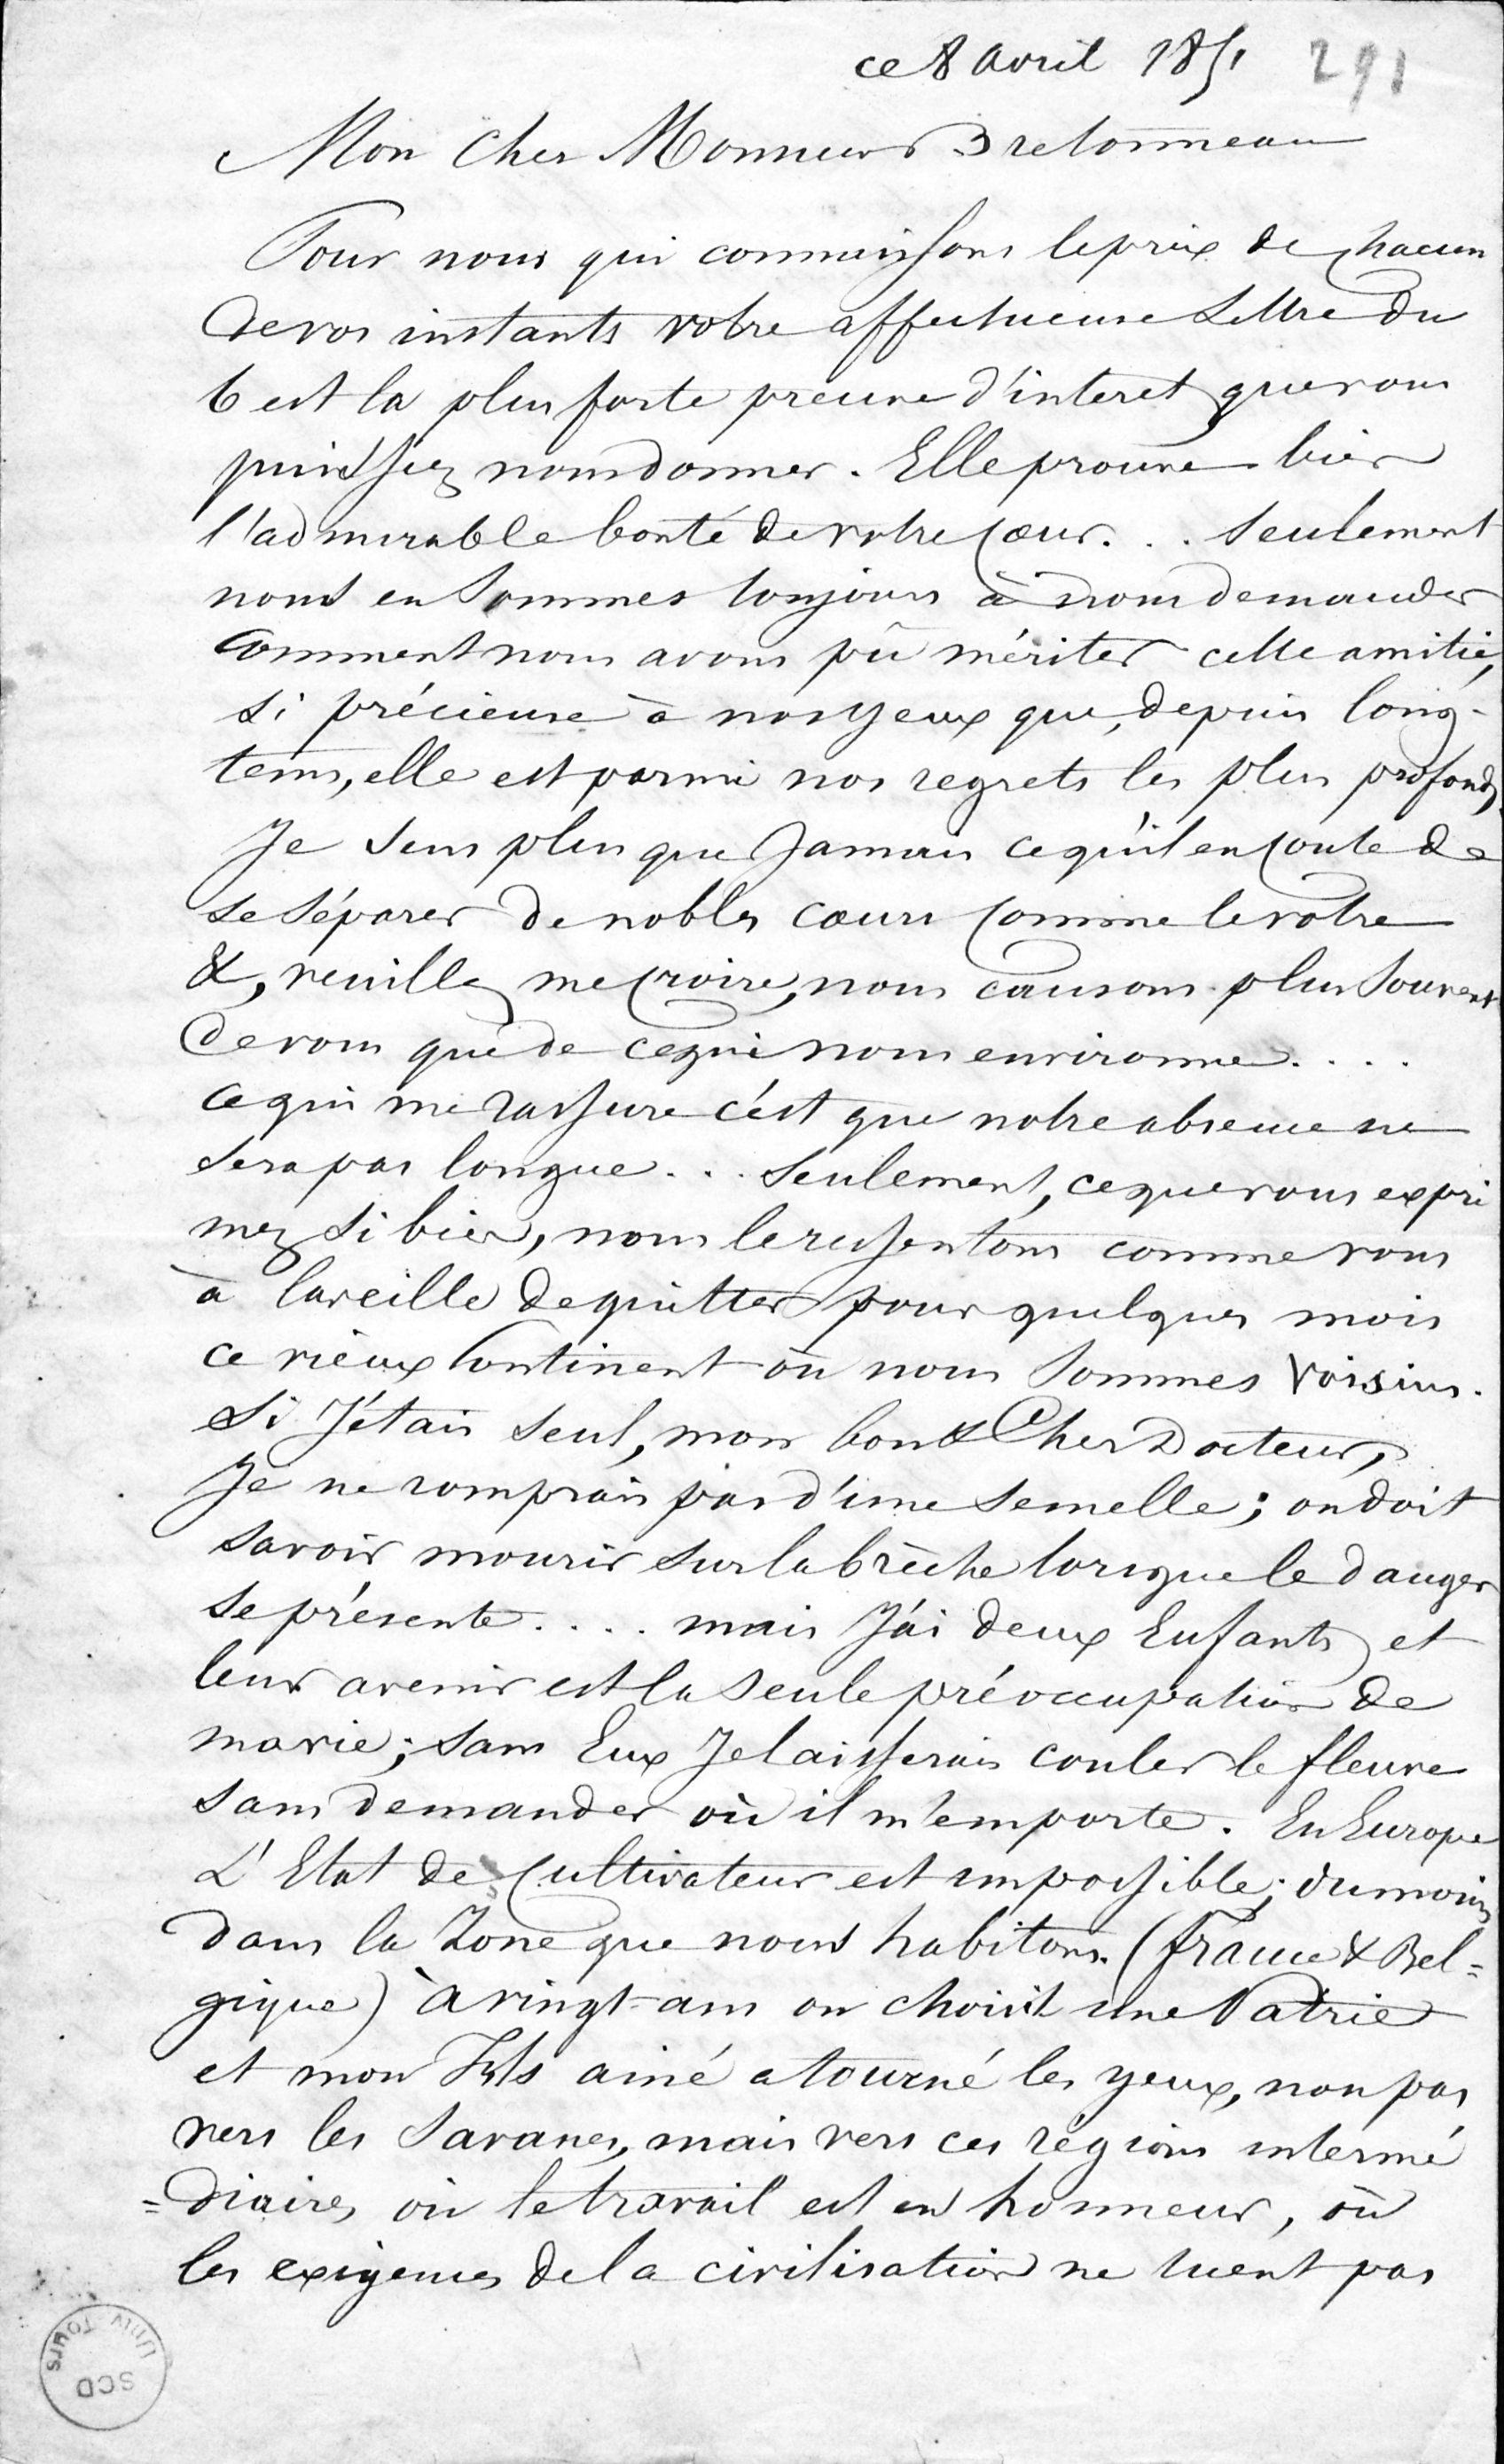 ce 8 avril 1851 291
Mon cher Monsieur Bretonneau
Pour nous qui connaissons le prix de chacun
de vos instants votre affectueuse Lettre du
6 est la plus forte preuve d'interet que vous
puissiez nous donner. Elle prouve bien
l'admirable bonté de votre Cœur... Seulement
nous en sommes toujours à nous demander
comment nous avons pû mériter cette amitié,
si précieuse à nos yeux que, depuis long-
tems, elle est parmi nos regrets les plus profonds
Je sens plus que Jamais ce qu'il en Coute de
se séparer de nobles cœurs Comme le votre
&, veuillez me Croire, nous causons plus Souvent
de vous que de ce qui nous environne....
ce qui me rassure c'est que notre absence ne
sera pas longue... Seulement, ce que vous expri
mez si bien, nous le ressentons comme vous
à la veille de quitter pour quelques mois
ce vieux Continent où nous Sommes voisins.
Si J'étais seul, mon bon & Cher Docteur,
Je ne romprais pas d'une semelle; on doit
savoir mourir sur la brèche lorsque le danger
se présente.... mais J'ai deux Enfants et
leur avenir est la seule préoccupation de
ma vie; sans Eux Je laisserais couler le fleuve
sans demander où il m'emporte. En Europe
L'Etat de Cultivateur est impossible; du moins
dans la Zone que nous habitons. (France & Bel=
gique) à vingt-ans on choisit une Patrie
et mon Fils ainé a tourné les yeux, non pas
vers les Savanes, mais vers ces régions intermé
=diaires où le travail est en honneur, où
les exigences de la civilisation ne tuent pas
Univ Tours
SCD